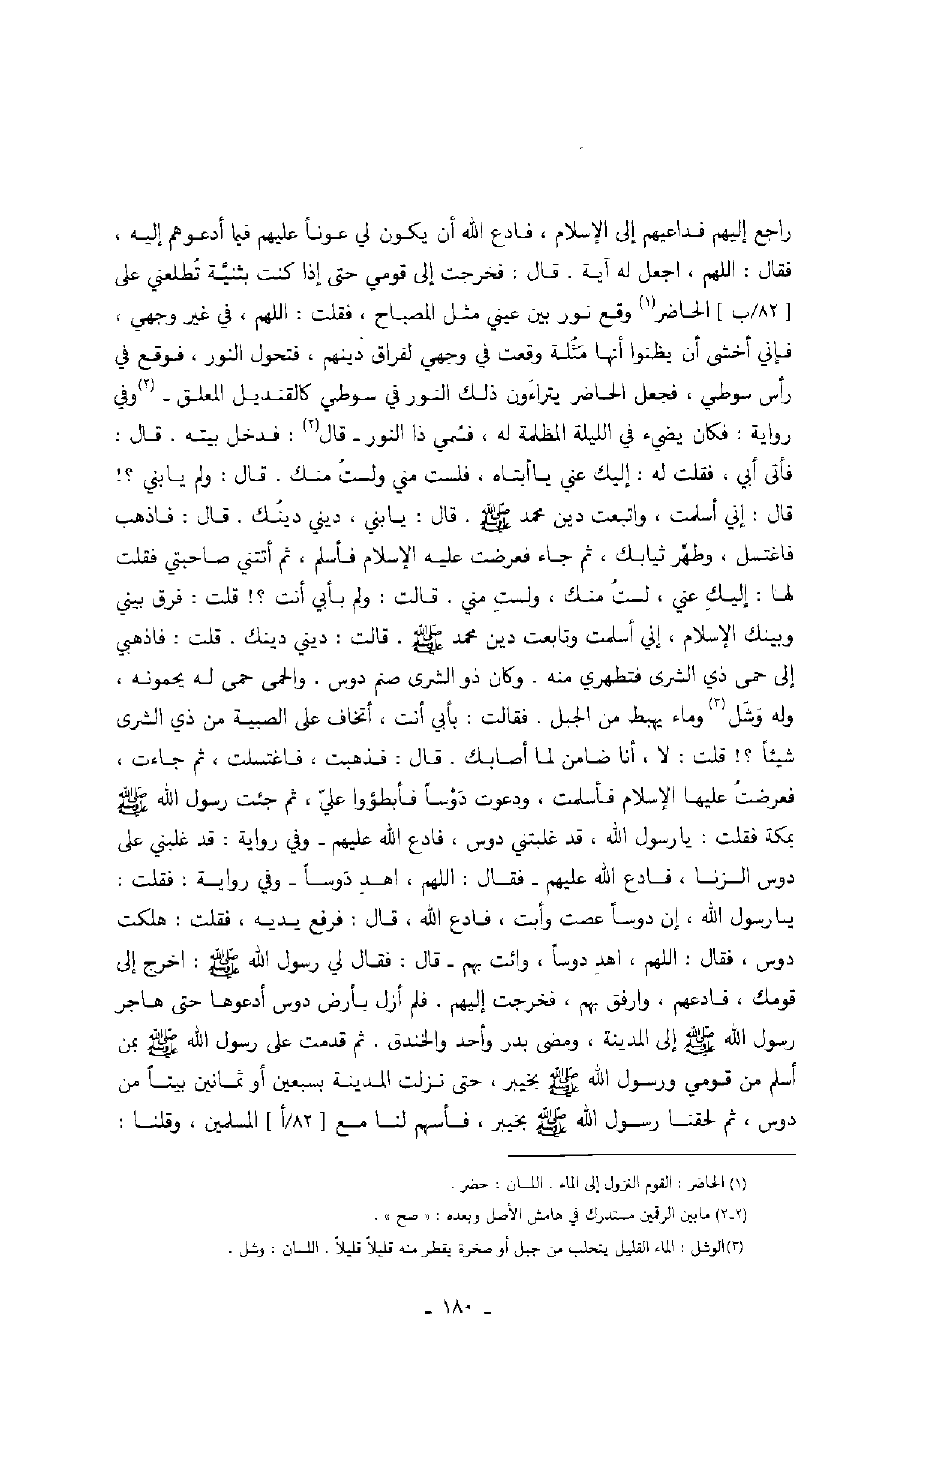 راجع إليهم فداعيهم إلى الإسلام ، فادع الله أن يكون لي عوناً عليهم فيما أدعوهم إليه ،
فقال : اللهم ، اجعل له آية . قال : فخرجت إلى قومي حتى إذا كنت بثنيَّة تُطلعني على
[ ٨٢/ب ] الحاضر(١) وقع نور بين عيني مثل المصباح ، فقلت : اللهم ، في غير وجهي ،
فإني أخشى أن يظنوا أنها مثُلة وقعت في وجهي لفراق دينهم ، فتحول النور ، فوقع في
رأس سوطي ، فجعل الحاضر يتراءون ذلك النور في سوطي كالقنديل المعلق ـ (٢)وفي
رواية : فكان يضيء في الليلة المظلمة له ، فسُمي ذا النور ـ قال(٢) : فدخل بيته . قال :
فأتى أبي ، فقلت له : إليك عني ياأبتاه ، فلست مني ولستُ منك . قال : ولم يابني ؟!
قال : إني أسلمت ، واتبعت دين محمد ﷺ . قال : يابني ، ديني دينُك . قال : فاذهب
فاغتسل ، وطهِّر ثيابك ، ثم جاء فعرضت عليه الإسلام فأسلم ، ثم أتتني صاحبتي فقلت
لها : إليكِ عني ، لستُ منك ، ولستِ مني . قالت : ولم بأبي أنت ؟! قلت : فرق بيني
وبينك الإسلام ، إني أسلمت وتابعت دين محمد ﷺ . قالت : ديني دينك . قلت : فاذهبي
إلى حمى ذي الشرى فتطهري منه . وكان ذو الشرى صنم دوس . والحمى حمى له يحمونه ،
وله وَشَل(٣) وماء يهبط من الجبل . فقالت : بأبي أنت ، أتخاف على الصبية من ذي الشرى
شيئاً ؟! قلت : لا ، أنا ضامن لما أصابك . قال : فذهبت ، فاغتسلت ، ثم جاءت ،
فعرضتُ عليها الإسلام فأسلمت ، ودعوت دَوْساً فأبطؤوا عليّ ، ثم جئت رسول الله ﷺ
بمكة فقلت : يارسول الله ، قد غلبتني دوس ، فادع الله عليهم ـ وفي رواية : قد غلبني على
دوس الزنا ، فادع الله عليهم ـ فقال : اللهم ، اهدِ دَوساً ـ وفي رواية : فقلت :
يارسول الله ، إن دوساً عصت وأبت ، فادع الله ، قال : فرفع يديه ، فقلت : هلكت
دوس ، فقال : اللهم ، اهدِ دوساً ، وائت بهم ـ قال : فقال لي رسول الله ﷺ : اخرج إلى
قومك ، فادعهم ، وارفق بهم ، فخرجت إليهم . فلم أزل بأرض دوس أدعوها حتى هاجر
رسول الله ﷺ إلى المدينة ، ومضى بدر وأحد والخندق . ثم قدمت على رسول الله ﷺ بمن
أسلم من قومي ورسول الله ﷺ بخيبر ، حتى نزلت المدينة بسبعين أو ثمانين بيتاً من
دوس ، ثم لحقنا رسول الله ﷺ بخيبر ، فأسهم لنا مع [ ٨٢/أ ] المسلمين ، وقلنا :
(١) الحاضر : القوم النزول إلى الماء . اللسان : حضر .
(٢ـ٢) مابين الرقمين مستدرك في هامش الأصل وبعده : « صح » .
(٣)الوشل : الماء القليل يتحلب من جبل أو صخرة يقطر منه قليلاً قليلاً . اللسان : وشل .
ـ ١٨٠ ـ